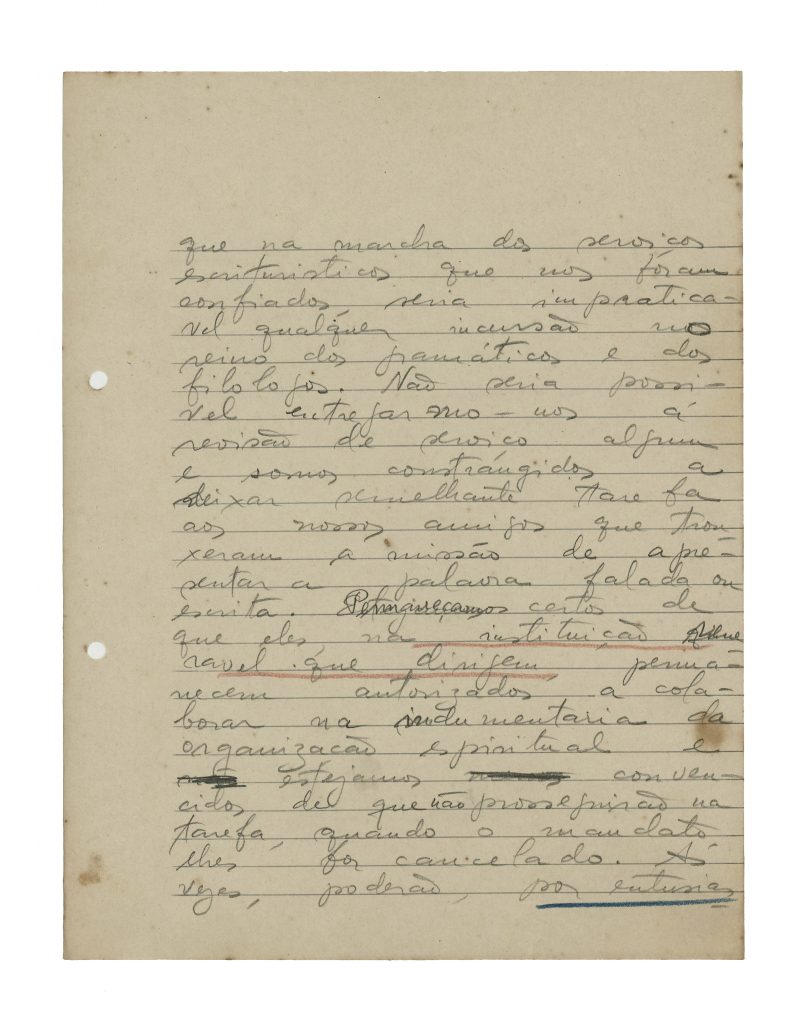 que na marcha dos serviços
escrituristicos que nos fôram
confiados, seria impratica-
vel qualquer incursão no
reino dos gramáticos e dos
filologos. Não seria possi-
vel entregarmo-nos á
revisão de serviço algum
e somos constrángidos a
deixar semelhante tarefa
aos nossos amigos que trou
xeram a missão de apre-
sentar a palavra falada ou
escrita. Permaneçamos certos de
que eles, na instituição vene
ravel que dirigem, perma-
necem autorizados a cola-
borar na indumentaria da
organização espiritual e
estejamos conven-
cidos de que não prosseguirão na
tarefa, quando o mandato
lhes for cancelado. Ás
vezes, poderão, por entusias